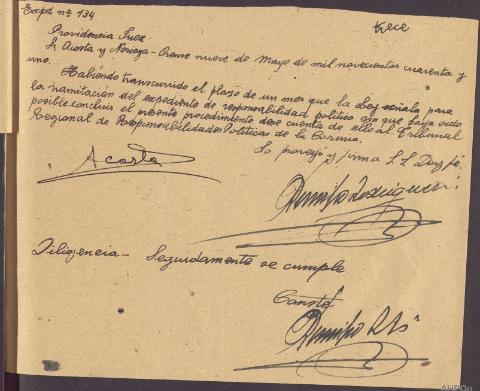 Expd nº 134
trece
Providencia Juez
Sr Acosta y Noriega - Orense nueve de Mayo de mil novecientos cuarenta y
uno.
Habiendo transcurrido el plazo de un mes que la Ley señala para
la tramitación del expediente de responsabilidad politica sin que haya sido
posible concluir el presente procedimiento dese cuenta de ello al Tribunal
Regional de Responsabilidades Politicas de la Coruña.
Lo proveyó y firma S. S. Doy fé
Acosta
Diligencia - Seguidamente se cumple
AHPOu